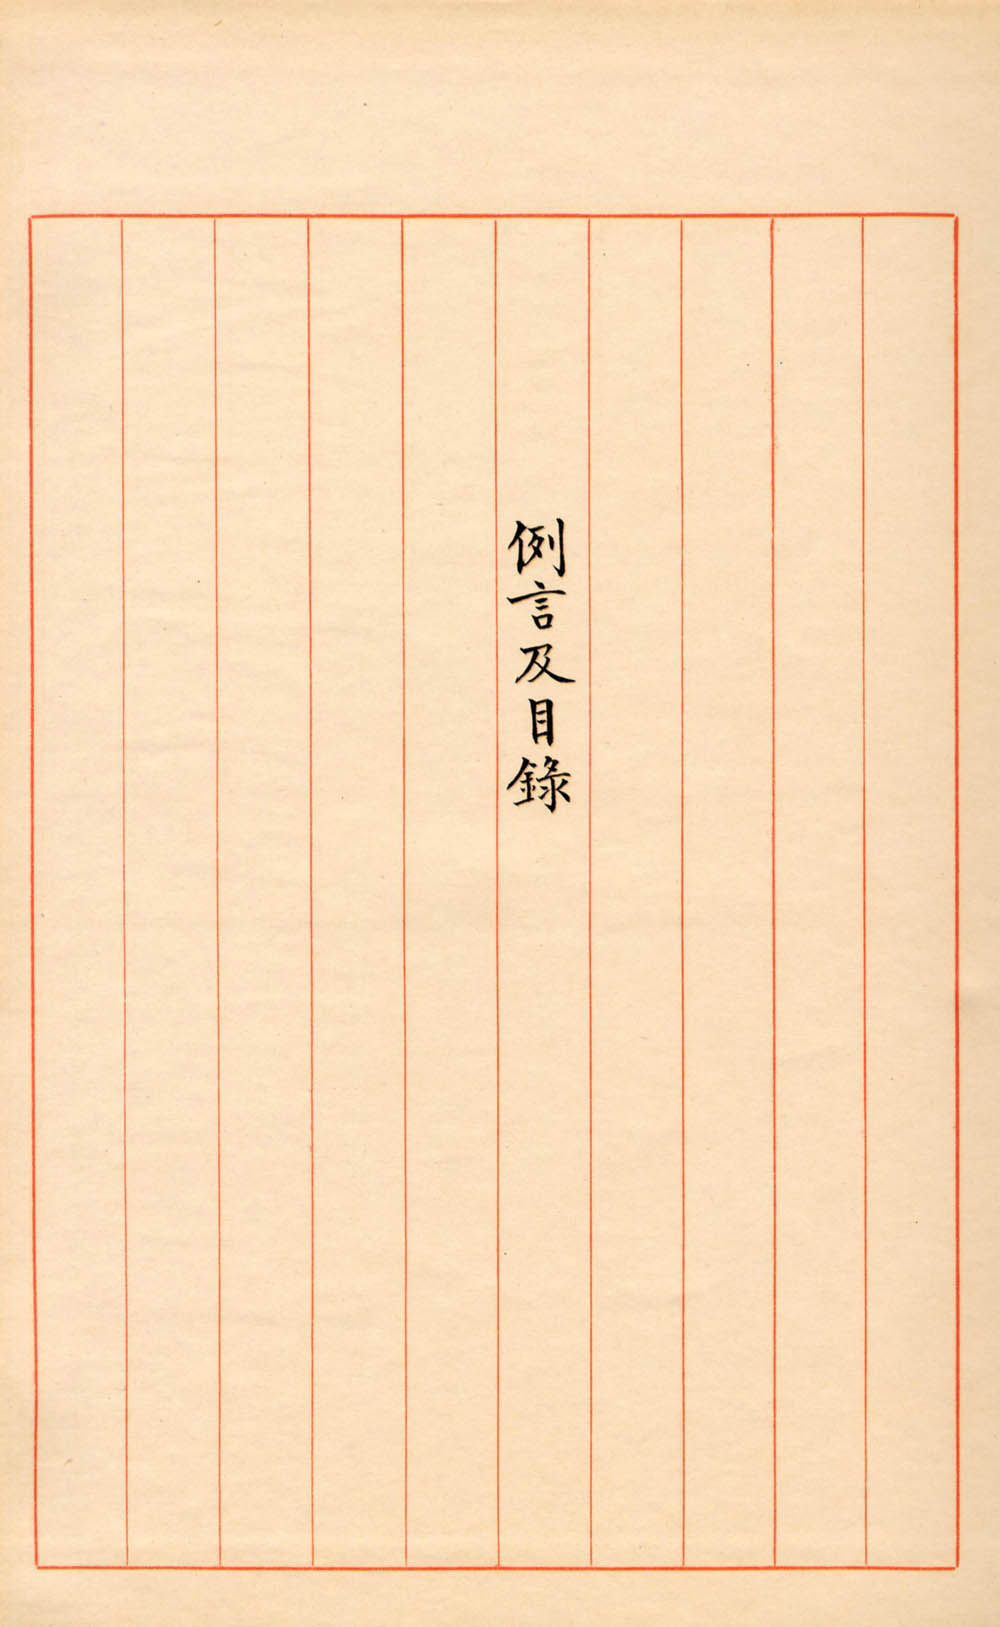 例言及目錄